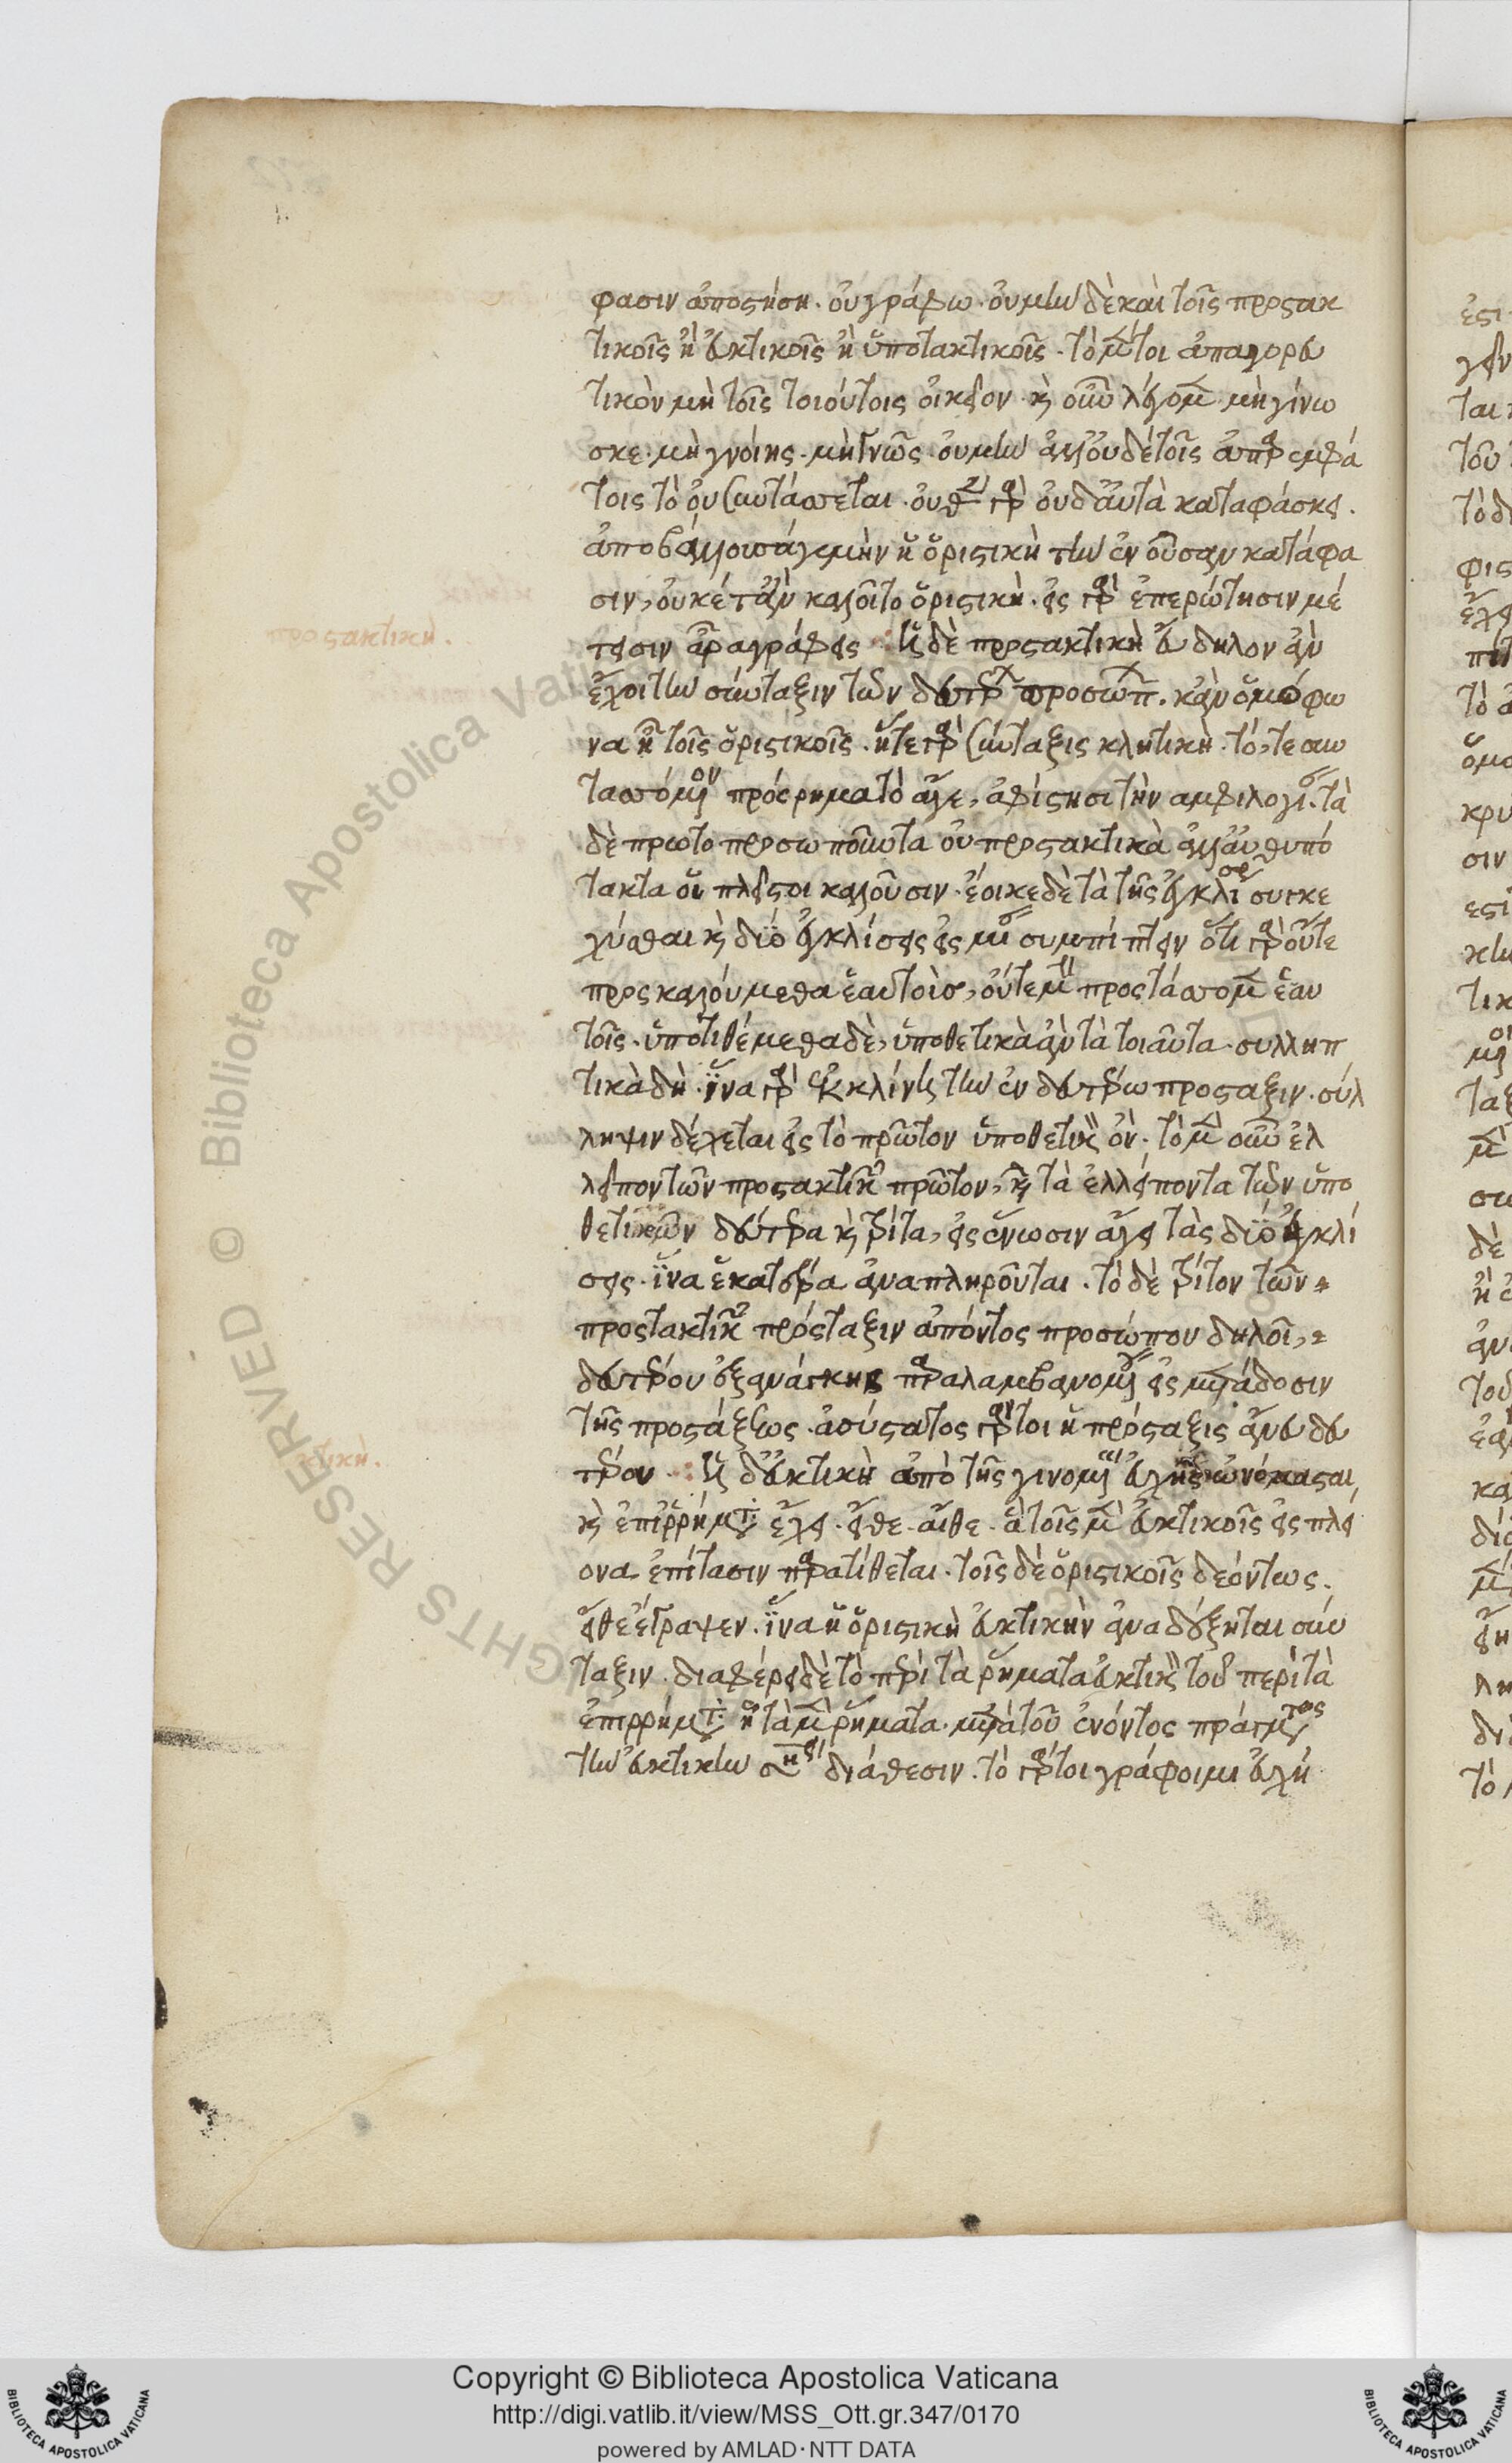 φασιν ἀποστήση. οὐ γράφω. οὐ μὴν δὲ καὶ τοῖς προστακ
τικοῖς ἢ εὐκτικοῖς ἢ ὑποτακτικοῖς. τὸ μέντοι ἀπαγορευ
τικὸν μὴ τοῖς τοιούτοις οἰκεῖον. καὶ οὕτω λέγομεν μὴ γίνω
σκε. μὴ γνοίης. μὴ γνῶς. οὐ μὴν ἀλλ' οὐδὲ τοῖς ἀπαρεμφά
τοις τὸ οὐ συντάσσεται. γὰρ οὐδ' αὐτὰ καταφάσκει.
ἀποβάλλουσά γε μὴν ἡ ὁριστικὴ τὴν ἐνοῦσαν κατάφα
σιν, οὐκέτ' ἂν καλοῖτο ὁριστική. εἰς γὰρ ἐπερώτησιν μέ
τεισιν ἆρα γράφεις ἡ δὲ προστακτικὴ εὔδηλον ἂν
ἔχοι τὴν σύνταξιν τῶν δευτέρων προσώπων. κἂν ὁμόφω
να ᾖ τοῖς ὁριστικοῖς. ἥ τε γὰρ σύνταξις κλητική. τό, τε συν
τασσόμενον πρὸς ῥήματα τὸ ἄγε, ἀφίστησι τὴν αμφιλογίαν. τὰ
δὲ πρωτοπροσωποῦντα οὐ προστακτικὰ ἀλλ' ἀνθυπό
τακτα οἱ πλείστοι καλοῦσιν. ἔοικε δὲ τὰ τῆς ἐγκλίσεως συγκε
χύσθαι καὶ δύο ἐγκλίσεις εἰς μίαν συμπίπτειν ὅτι γὰρ οὔτε
προσκαλούμεθα ἑαυτοὺς, οὔτε μὴν προστάσσομεν ἑαυ
τοῖς. ὑποτιθέμεθα δὲ, ὑποθετικὰ ἂν τὰ τοιαῦτα. συλληπ
τικὰ δὴ. ἵνα γὰρ ἐκκλίνῃ τὴν ἐν δευτέρω πρόσταξιν. σύλ
ληψιν δέχεται εἰς τὸ πρῶτον ὑποθετικὸν ὄν. τὸ μὲν οὖν ἐλ
λεῖπον τῶν προστακτικῶν πρῶτον, καὶ τὰ ἐλλείποντα τῶν ὑπο
θετικῶν δεύτερα καὶ τρίτα, εἰς ἕνωσιν ἄγει τὰς δύο ἐγκλί
σεις. ἵνα ἑκατέρα ἀναπληροῦνται. τὸ δὲ τρίτον τῶν
προστακτικῶν πρόσταξιν ἀπόντος προσώπου δηλοῖ,
δευτέρου ἐξανάγκης παραλαμβανομένου εἰς μετάδοσιν
τῆς προστάξεως. ἀσύστατος γάρ τοι ἡ πρόσταξις ἄνευ δευ
τέρου. ἡ δ' εὐκτικὴ ἀπὸ τῆς γινομένης εὐχῆς ὠνόμασται,
καὶ ἐπιρρήματα ἔχει. εἴθε. αἴθε. ἃ τοῖς μὲν εὐκτικοῖς εἰς πλεί
ονα ἐπίτασιν παρατίθεται. τοῖς δὲ ὁριστικοῖς δεόντως.
εἴθε ἔγραψεν. ἵνα ἡ ὁριστικὴ εὐκτικὴν ἀναδέξηται σύν
ταξιν. διαφέρει δὲ τὸ περὶ τὰ ῥήματα εὐκτικὸν τοῦ περὶ τὰ
ἐπιρρήματα ἧ τὰ μὲν ῥήματα. μετὰ τοῦ ἐνόντος πράγματος
τὴν εὐκτικὴν σημαίνει διάθεσιν. τό γάρ τοι γράφοιμι εὐχὴ
προστακτική.
κτική.
Copyright © Biblioteca Apostolica Vaticana
http://digi.vatlib.it/view/MSS_Ott.gr.347/0170
powered by AMLAD·NTT DATA